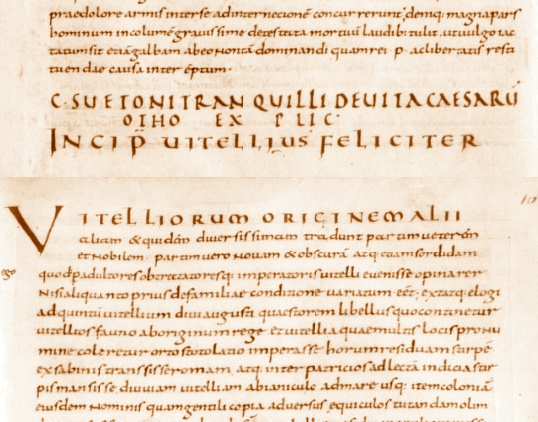 praedolore armis interse adinternecionē concurrerunt; deniq; magna pars
hominum incolumē gravissime detestata mortuū laudib; tulit, ut vulgo iac
tatum sit etiā galbam abeo non tā dominandi quam rei · p · ac libertatis resti
tuendae causa interēptum·
C · SUETONI TRANQUILLI DE UITA CAESARŪ
OTHO EX PLIC
INCIP UITELLIUS FELICITER
VITELLIORUM ORIGINEM ALII
aliam & quidam diversissimam tradunt partim veterēm
et Nobilem · partim vero Novam & obscurā atq; etiam sordidam
quod p adulatores obtrectatoresq; imperatoris vitelli evenisse opinarer
Nisi aliquanto prius de familiae condicione variatum eēt; extatq; elogi
ad quintū vitellium divi augusti quaestorem libellus quo continetur
vitellios fauno aboriginum rege et vitellia quae multis locis pro nu
mine coleretur ortos toto latio imperasse horum residuam stirpē
ex sabinis transisse romam, atq; inter patricios adlectā indicia stir
pis mansisse, diu viam vitelliam ab ianiculo ad mare usq; item coloniā
eiusdem Nominis quam gentili copia adversus equiculos tutandam olim